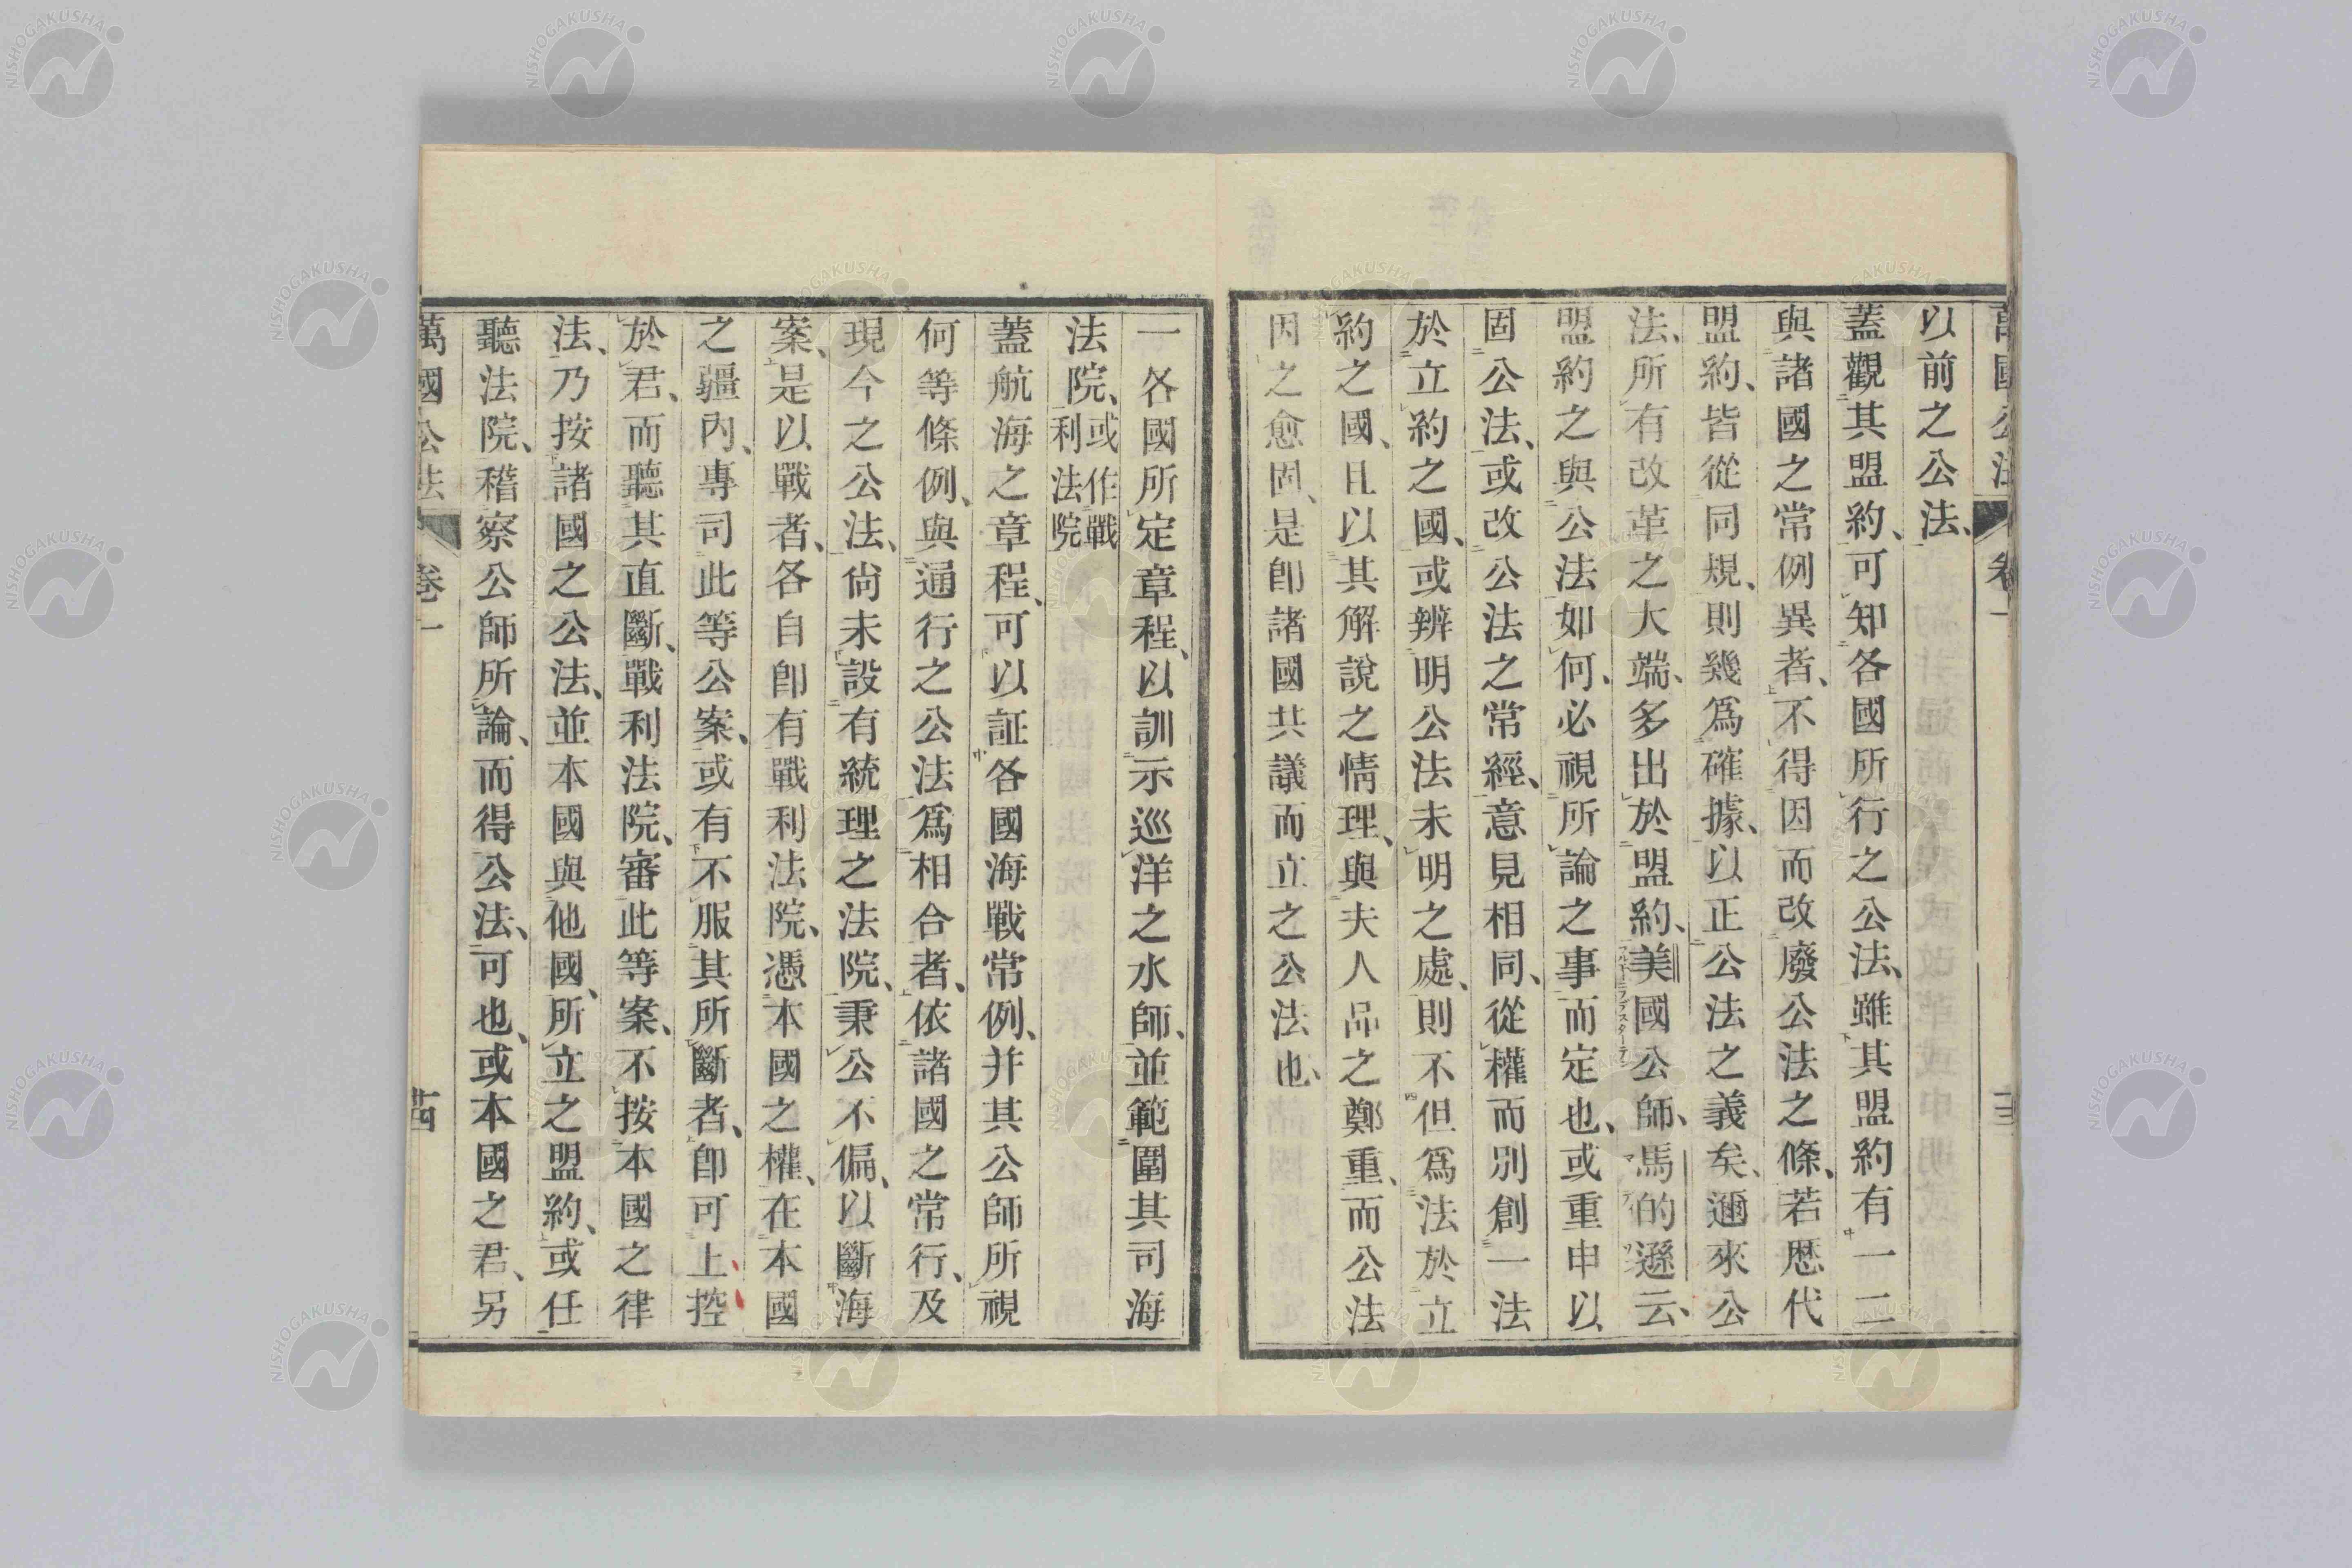 萬國公法 卷一
以前之公法、
蓋觀其盟約、可知各國所行之公法、雖其盟約有一二
與諸國之常例異者、不得因而改廢公法之條、若歷代
盟約、皆從同規、則幾爲確據、以正公法之義矣、邇來公
法、所有改革之大端、多出於盟約、美國公師、馬的遜云、
盟約之與公法如何、必視所論之事而定也、或重申以
固公法、或改公法之常經、意見相同、從權而別創一法
於立約之國、或辨明公法未明之處、則不但爲法於立
約之國、且以其解說之情理、與夫人品之鄭重、而公法
因之愈固、是卽諸國共議而立之公法也、
一各國所定章程、以訓示巡洋之水師、並範圍其司海
法院、或作戰利法院
蓋航海之章程、可以証各國海戰常例、并其公師所視
何等條例、與通行之公法、爲相合者、依諸國之常行、及
現今之公法、尙未設有統理之法院、秉公不偏、以斷海
案、是以戰者、各自卽有戰利法院、憑本國之權、在本國
之疆內、專司此等公案、或有不服其所斷者、卽可上控
於君、而聽其直斷、戰利法院、審此等案、不按本國之律
法、乃按諸國之公法、並本國與他國、所立之盟約、或任
聽法院、稽察公師所論、而得公法、可也、或本國之君、另
萬國公法 卷一 十四
NISHOGAKUSHA